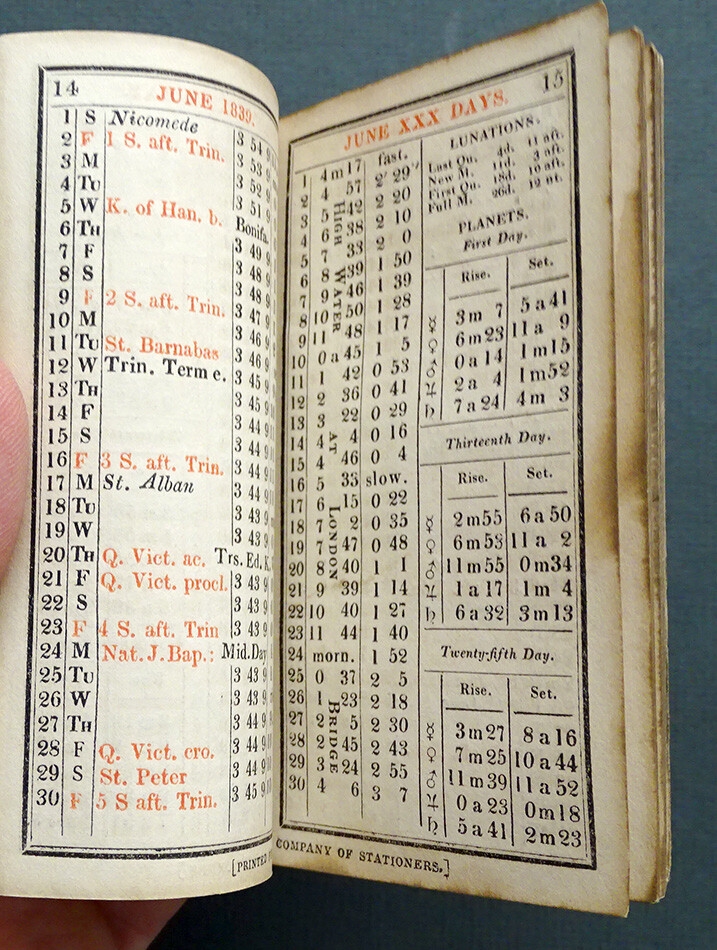 14
JUNE 1839.
1 S Nicomede 3 54
2 F 1 S. aft. Trin. 3 53
3 M 3 52
4 TU 3 51
5 W K. of Han. b.
6 TH Bonifa.
7 F 3 49
8 S 3 48
9 F 2 S. aft. Trin. 3 48
10 M 3 47
11 TU St. Barnabas 3 46
12 W Trin. Term e. 3 46
13 TH 3 45
14 F 3 45
15 S 3 44
16 F 3 S. aft. Trin. 3 44
17 M St. Alban 3 44
18 TU 3 44
19 W 3 43
20 TH Q. Vict. ac. Trs. Ed. K.
21 F Q. Vict. procl. 3 43
22 S 3 43
23 F 4 S. aft. Trin 3 43
24 M Nat. J. Bap.: Mid. Day
25 TU 3 43
26 W 3 43
27 TH 3 44
28 F Q. Vict. cro. 3 44
29 S St. Peter 3 44
30 F 5 S aft. Trin. 3 45
[PRINTED
15
JUNE XXX DAYS.
HIGH WATER AT LONDON BRIDGE
fast.
1 4m17 2'29"
2 4 57 2 20
3 5 42 2 10
4 6 38 2 0
5 7 33 1 50
6 8 39 1 39
7 9 46 1 28
8 10 50 1 17
9 11 48 1 5
10 0a45 0 53
11 1 42 0 41
12 2 36 0 29
13 3 22 0 16
14 4 4 0 4
15 4 46 slow.
16 5 33 0 22
17 6 15 0 35
18 7 2 0 48
19 7 47 1 1
20 8 40 1 14
21 9 39 1 27
22 10 40 1 40
23 11 44 1 52
24 morn. 2 5
25 0 37 2 18
26 1 23 2 30
27 2 5 2 43
28 2 45 2 55
29 3 24 3 7
30 4 6
LUNATIONS.
Last Qu. 4d. 11 aft.
New M. 11d. 3 aft.
First Qu. 18d. 10 aft.
Full M. 26d. 12 nt.
PLANETS.
First Day.
Rise. Set.
☿ 3m 7 5a41
♀ 6m23 11a 9
♂ 0a14 1m15
♃ 2a 4 1m52
♄ 7a24 4m 3
Thirteenth Day.
Rise. Set.
☿ 2m55 6a50
♀ 6m53 11a 2
♂ 11m55 0m34
♃ 1a17 1m 4
♄ 6a32 3m13
Twenty-fifth Day.
Rise. Set.
☿ 3m27 8a16
♀ 7m25 10a44
♂ 11m39 11a52
♃ 0a23 0m18
♄ 5a41 2m23
COMPANY OF STATIONERS.]